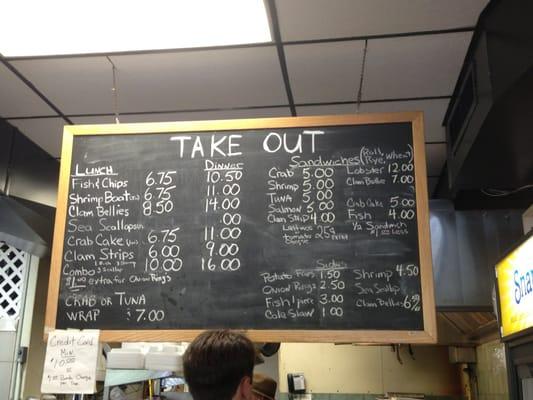 TAKE OUT
LUNCH DINNER
Fish & Chips 6.75 10.50
Shrimp Boat 6.75 11.00
Clam Bellies 8.50 14.00
Sea Scallops .00
Crab Cake 6.75 11.00
Clam Strips 6.00 9.00
Combo 10.00 16.00
$1.00 extra for Onion Rings
CRAB OR TUNA
WRAP $7.00
Sandwiches (Roll, Rye, Wheat)
Crab 5.00 Lobster 12.00
Shrimp 5.00 Clam Bellie 7.00
TUNA 5.00
Salmon 5.00 Crab Cake 5.00
Clam Strip 4.00 Fish 4.00
Lettuce 1/2 Sandwich
tomato 25¢ $1.00 Less
extra
Sides
Potato 1.50 Shrimp 4.50
Onion Rings 2.50 Sea Scallop
Fish 1 piece 3.00 Clam Bellies 6
Cole Slaw 1.00
Credit Card
MIN.
$10.00
OR